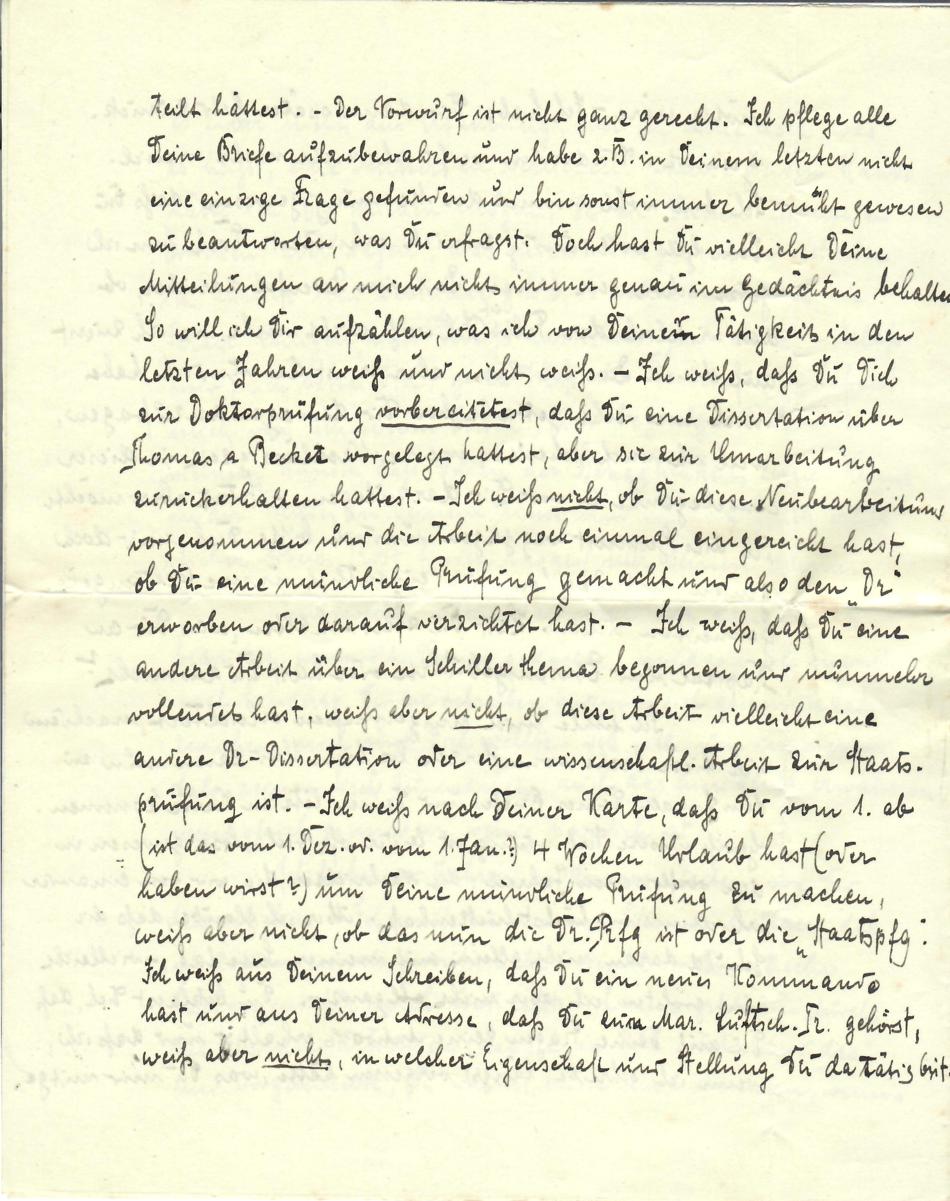 teilt hättest. - Der Vorwurf ist nicht ganz gerecht. Ich pflege alle
Deine Briefe aufzubewahren und habe z.B. in Deinem letzten nicht
eine einzige Frage gefunden und bin sonst immer bemüht gewesen
zu beantworten, was Du erfragst. Doch hast Du vielleicht Deine
Mitteilungen an mich nicht immer genau im Gedächtnis behalten
So will ich Dir aufzählen, was ich von Deiner Tätigkeit in den
letzten Jahren weiß und nicht weiß. - Ich weiß, daß Du Dich
zur Doktorprüfung vorbereitetest, daß Du eine Dissertation über
Thomas a Becket vorgelegt hattest, aber sie zur Umarbeitung
zurückerhalten hattest. - Ich weiß nicht, ob Du diese Neubearbeitung
vorgenommen und die Arbeit noch einmal eingereicht hast,
ob Du eine mündliche Prüfung gemacht und also den „Dr"
erworben oder darauf verzichtet hast. - Ich weiß, daß Du eine
andere Arbeit über ein Schillerthema begonnen und nunmehr
vollendet hast, weiß aber nicht, ob diese Arbeit vielleicht eine
andere Dr-Dissertation oder eine wissenschaftl. Arbeit zur Staats-
prüfung ist. - Ich weiß nach Deiner Karte, daß Du vom 1. ab
(ist das vom 1. Dez. od. vom 1. Jan.?) 4 Wochen Urlaub hast (oder
haben wirst?) um Deine mündliche Prüfung zu machen,
weiß aber nicht, ob das nun die Dr. Prfg ist oder die „Staatspfg".
Ich weiß aus Deinem Schreiben, daß Du ein neues Kommando
hast und aus Deiner Adresse, daß Du zur Mar. Luftsch. Tr. gehörst,
weiß aber nicht, in welcher Eigenschaft und Stellung Du da tätig bist.